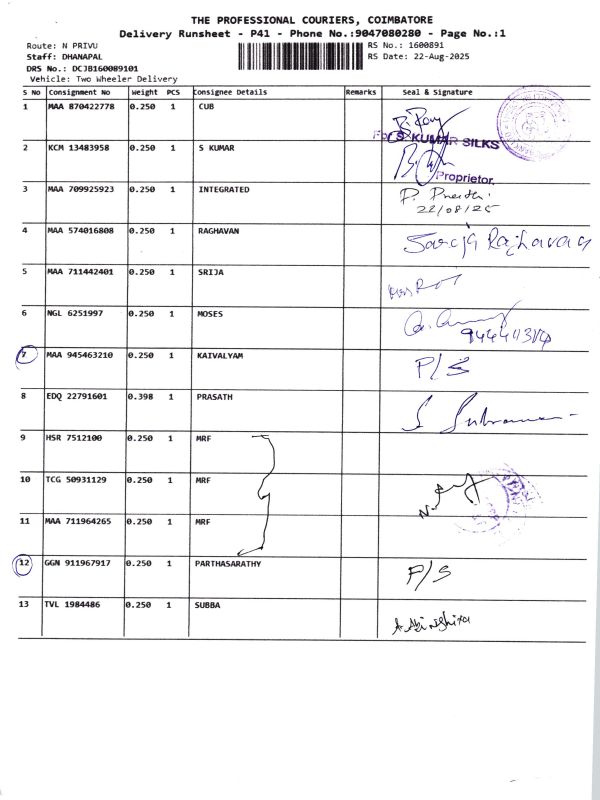 THE PROFESSIONAL COURIERS, COIMBATORE
Delivery Runsheet - P41 - Phone No.:9047080280 - Page No.:1
Route: N PRIVU RS No.: 1600891
Staff: DHANAPAL RS Date: 22-Aug-2025
DRS No.: DCJB160089101
Vehicle: Two Wheeler Delivery
S No Consignment No Weight PCS Consignee Details Remarks Seal & Signature
1 MAA 870422778 0.250 1 CUB
2 KCM 13483958 0.250 1 S KUMAR
For S KUMAR SILKS
Proprietor.
3 MAA 709925923 0.250 1 INTEGRATED P. Preethi
22/08/25
4 MAA 574016808 0.250 1 RAGHAVAN Saroja Raghavan
5 MAA 711442401 0.250 1 SRIJA
6 NGL 6251997 0.250 1 MOSES
7 MAA 945463210 0.250 1 KAIVALYAM P/S
8 EDQ 22791601 0.398 1 PRASATH
9 HSR 7512100 0.250 1 MRF
10 TCG 50931129 0.250 1 MRF
11 MAA 711964265 0.250 1 MRF
12 GGN 911967917 0.250 1 PARTHASARATHY P/S
13 TVL 1984486 0.250 1 SUBBA